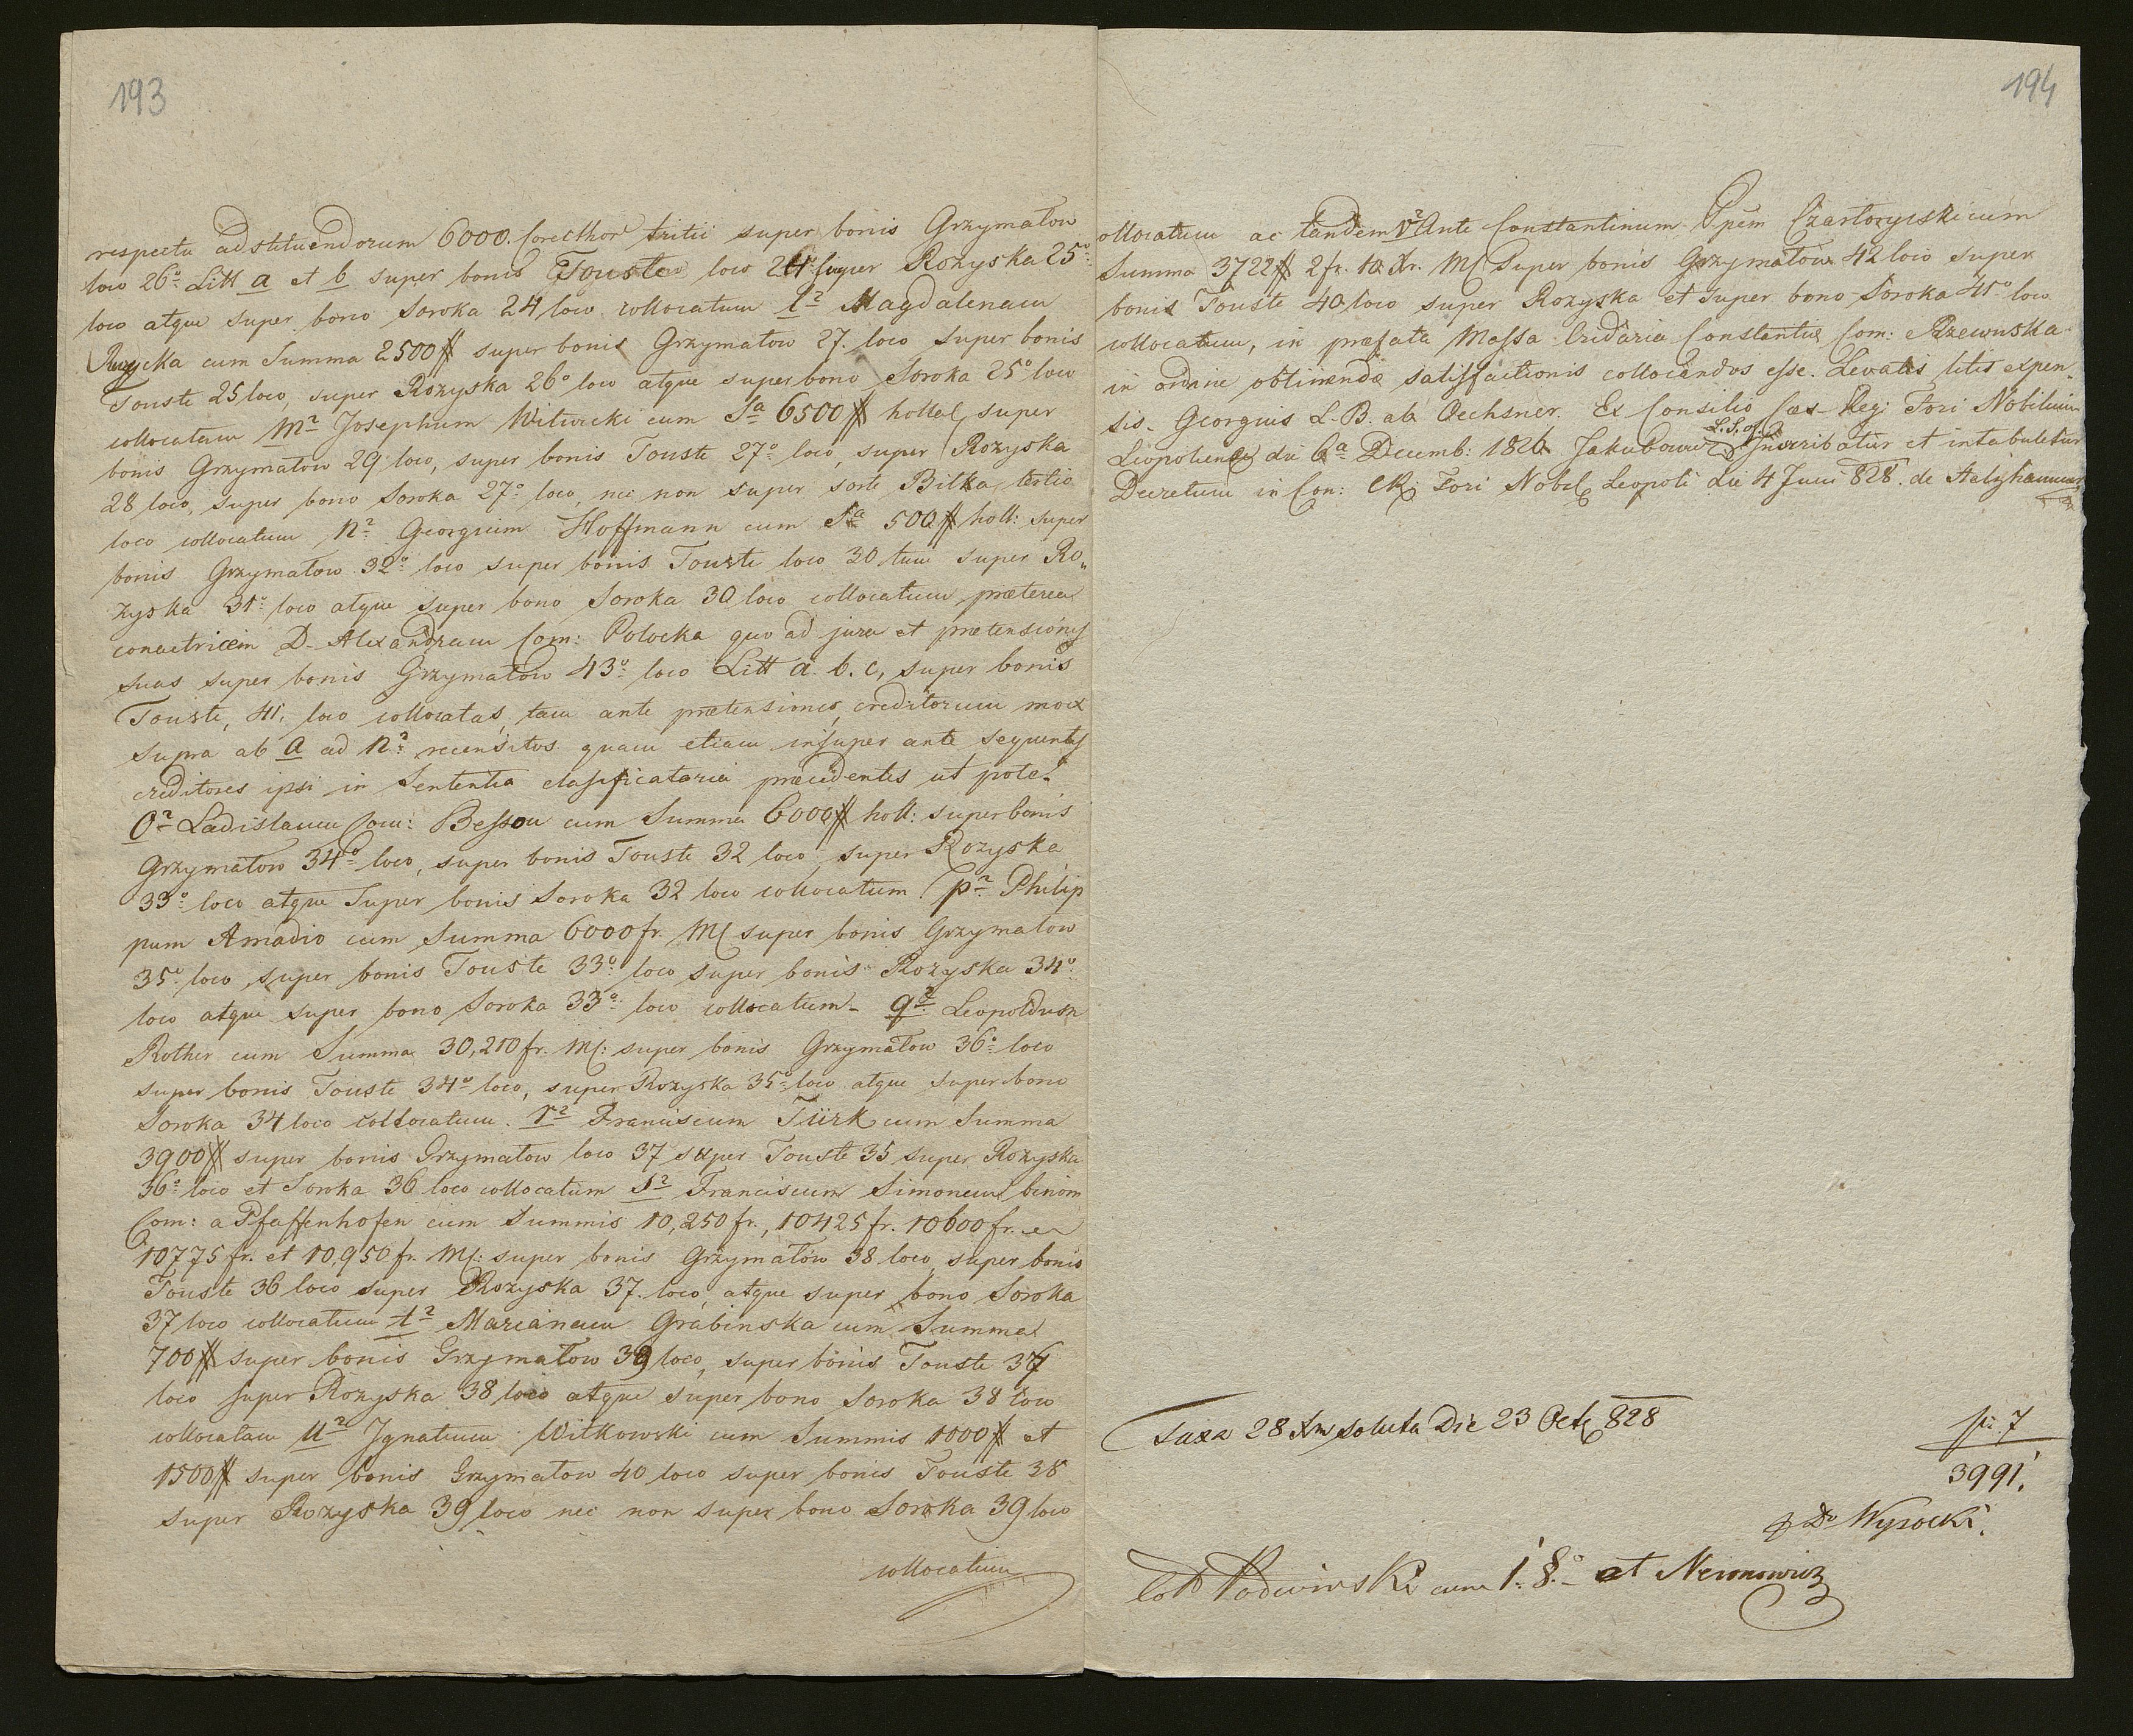 193
respectu adstituendorum 6000. Corcthor tritii super bonis Grzymałow
loco 26º Litt a et b super bonis Touste loco 24º super Rozyska 25º
loco atque super bono Soroka 24 loco collocatum l² Magdalenam
cum Summa 2500# super bonis Grzymatow 27. loco super bonis
Touste 25 loco, super Rozyska 26º loco atque super bono Soroka 25º loco
collocatam m² Josephum Witwicki cum Sª 6500# holl super
bonis Grzymatow 29 loco, super bonis Touste 27º loco, super Rozyska
28 loco, super bono Soroka 27º loco, nec non super sorte Bilka tertio
loco collocatum n² Georgium Hoffmann cum Sª 500# holl: super
bonis Grzymatow 32º loco super bonis Touste loco 30 tum super Ro„
zyska 31º loco atque super bono Soroka 30 loco collocatum præterea
conactricem D. Alexandram Com: Potocka quo ad jura et prætensiones
suas super bonis Grzymatow 43º loco Litt a. b. c, super bonis
Touste, 41. loco collocatas, tam ante prætensiones creditorum mox
supra ab a ad n² recensitos quam etiam insuper ante sequentes
creditores ipsi in Sententia classificatoria præcedentes ut pote.
o² Ladislaum Com: Bessou cum Summa 6000# holl: super bonis
Grzymatow 34º loco, super bonis Touste 32 loco super Rozyska
33º loco atque Super bonis Soroka 32 loco collocatum p² Philip
pum Amadio cum Summa 6000 fr. M super bonis Grzymatow
35º loco super bonis Touste 33º loco super bonis Rozyska 34º
loco atque super bono Soroka 33º loco collocatum - q² Leopoldum
Rother cum Summa 30,210 fr. M: super bonis Grzymatow 36º loco
super bonis Touste 34º loco, super Rozyska 35º loco atque super bono
Soroka 34 loco collocatum. r² Franciscum Türk cum Summa
3900# super bonis Grzymatow loco 37 super Touste 35 super Rozyska
36º loco et Soroka 36 loco collocatum s² Franciscum Simonem binom
Com: a Pfaffenhofen cum Summis 10,250 fr., 10425 fr. 10600 fr.
10775 fr. et 10,950 fr. M: super bonis Grzymatów 38 loco, super bonis
Touste 36 loco super Rozyska 37. loco, atque super bono Soroka
37 loco collocatum t² Mariànam Grabinska cum Summa
700# super bonis Grzymatow 39 loco, super bonis Touste 37
loco super Rozyska 38 loco atque super bono Soroka 38 loco
collocatam u² Jgnatium Witkowski cum Summis 1000# et
1500# super bonis Grzymatow 40 loco super bonis Touste 38
super Rozyska 39 loco nec non super bono Soroka 39 loco
collocatum
194
ollocatum ac tandem v² Ante Constantinum Ppem Czartoryiski cum
Summa 3722# 2 fr. 10 Xr. M Super bonis Grzymatow 42 loco super
bonis Touste 40 loco super Rozyska et super bono Soroka 41º loco
collocatum, in præfata Massa Cridaria Constantiæ Com: Rzewuska
in ordine obtinendæ satisfactionis collocandos esse. Levatis litis expen„
sis. Georgius L. B. ab Oechsner. Ex Consilio Cæs- Reg: Fori Nobilium
Leopoliense die 6ª Decemb: 1826 Jakubowicz L.S. Jnscribatur et intabuletur
Decretum in Con: CR: Fori Nobil Leopoli Die 4 Juni 828. de
Taxa 28 Xr soluta Die 23 Octr 828
7
3991.
Wysocki.
cum 1. 8. et Neronowicz